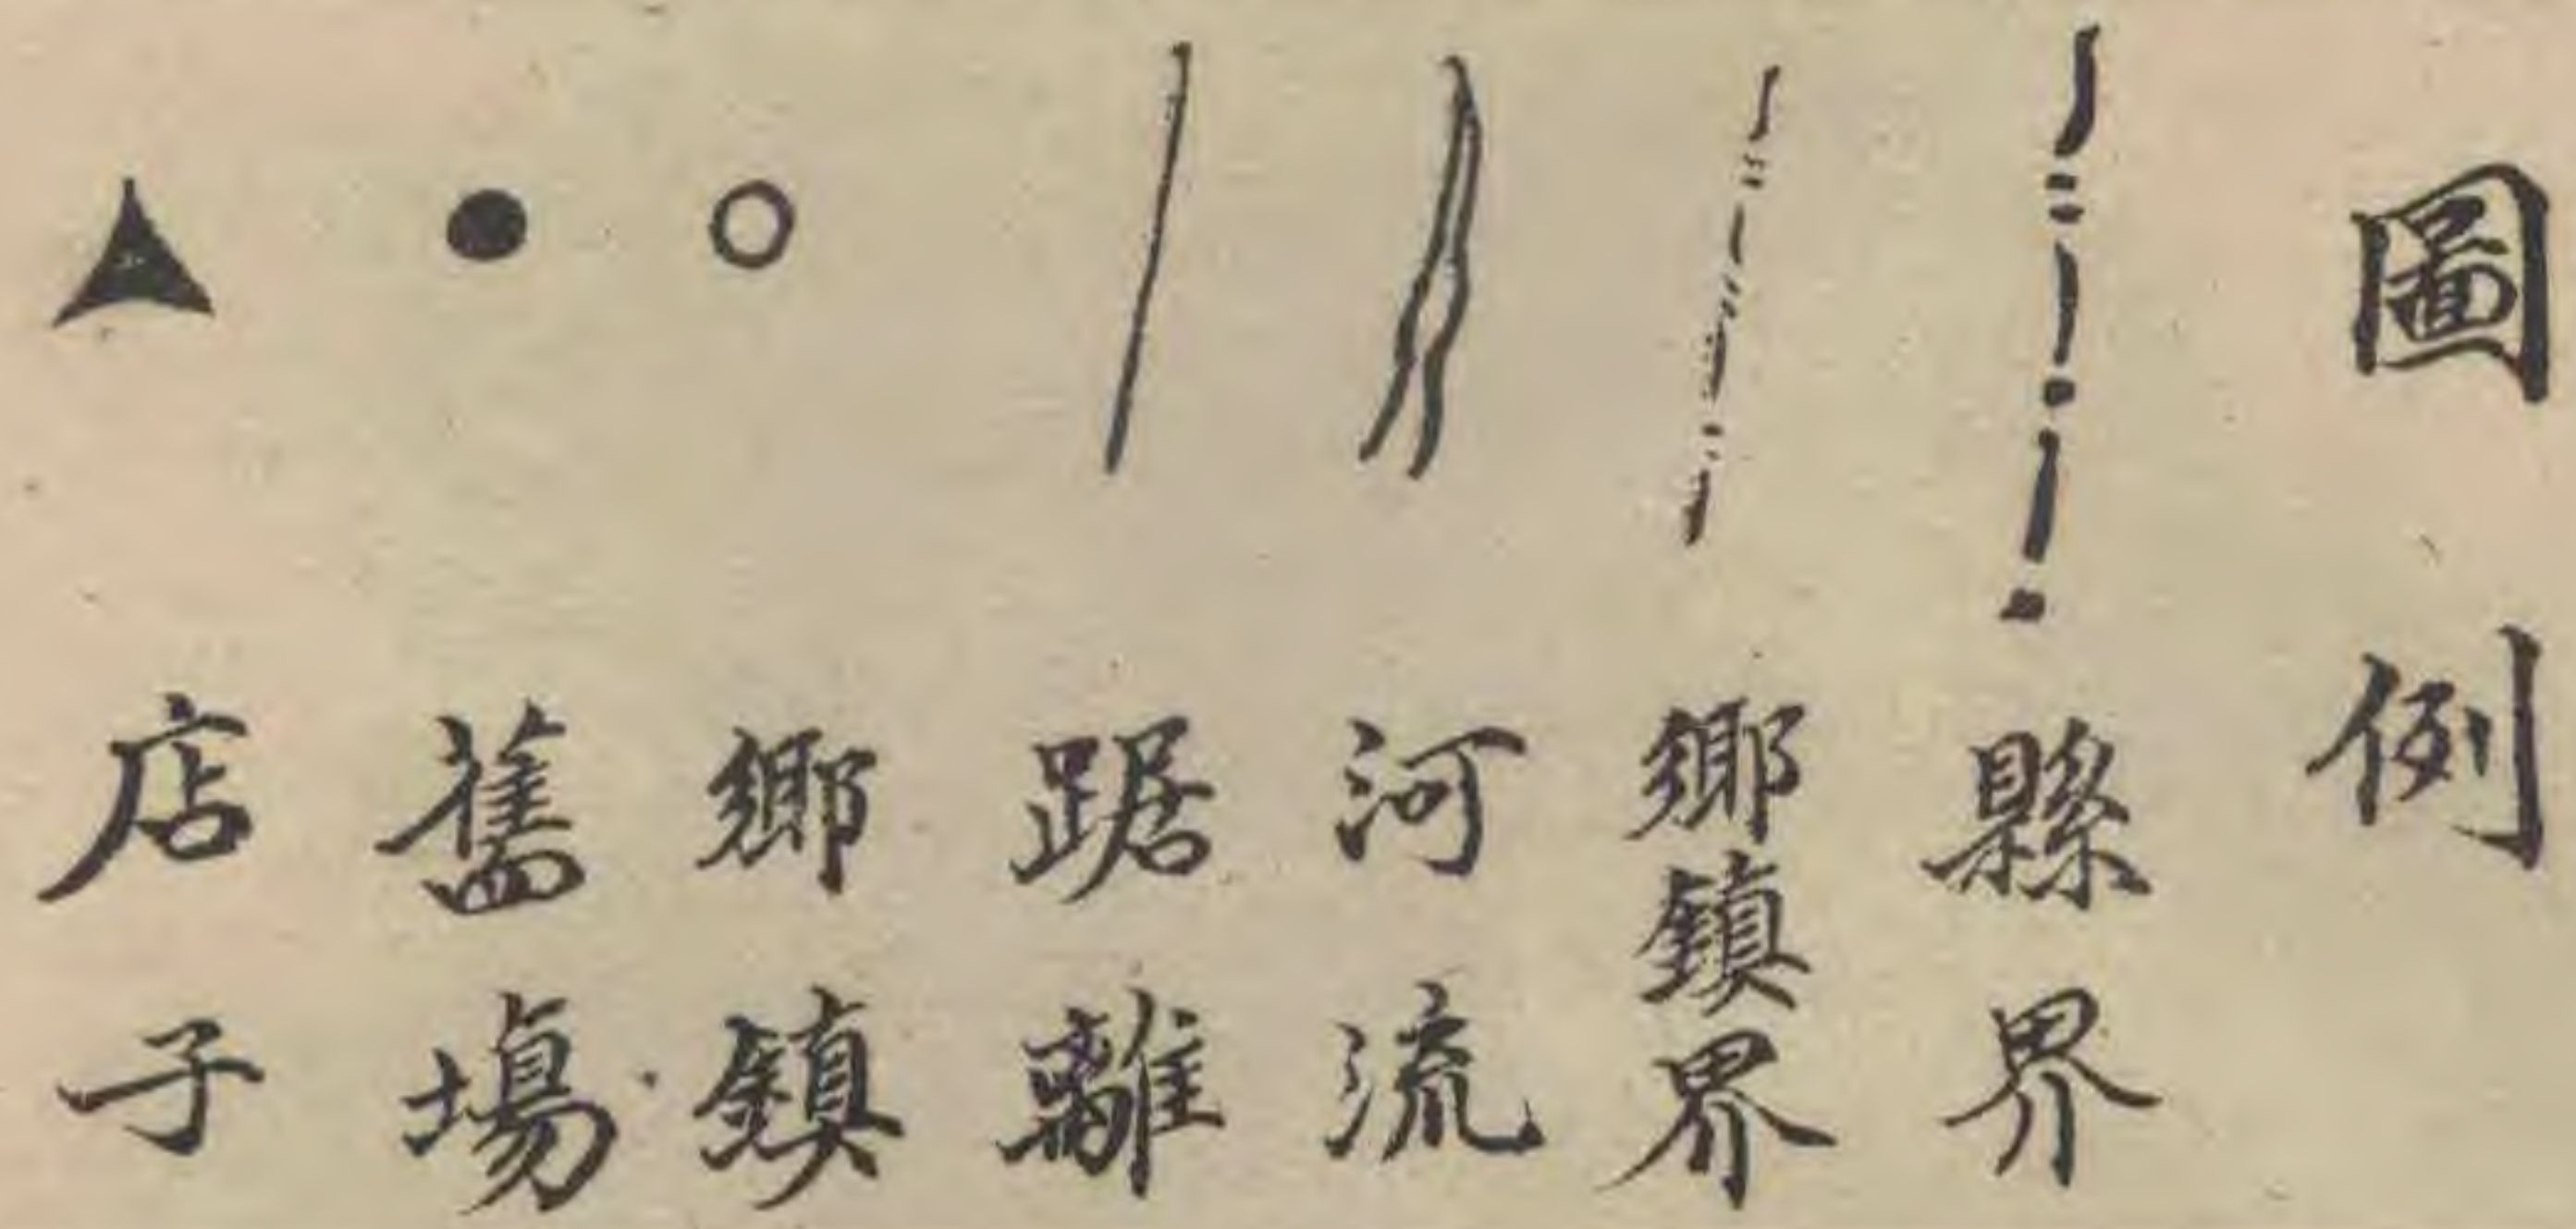 圖例
縣界
鄉鎮界
河流
踞離
鄉鎮
舊場
店子